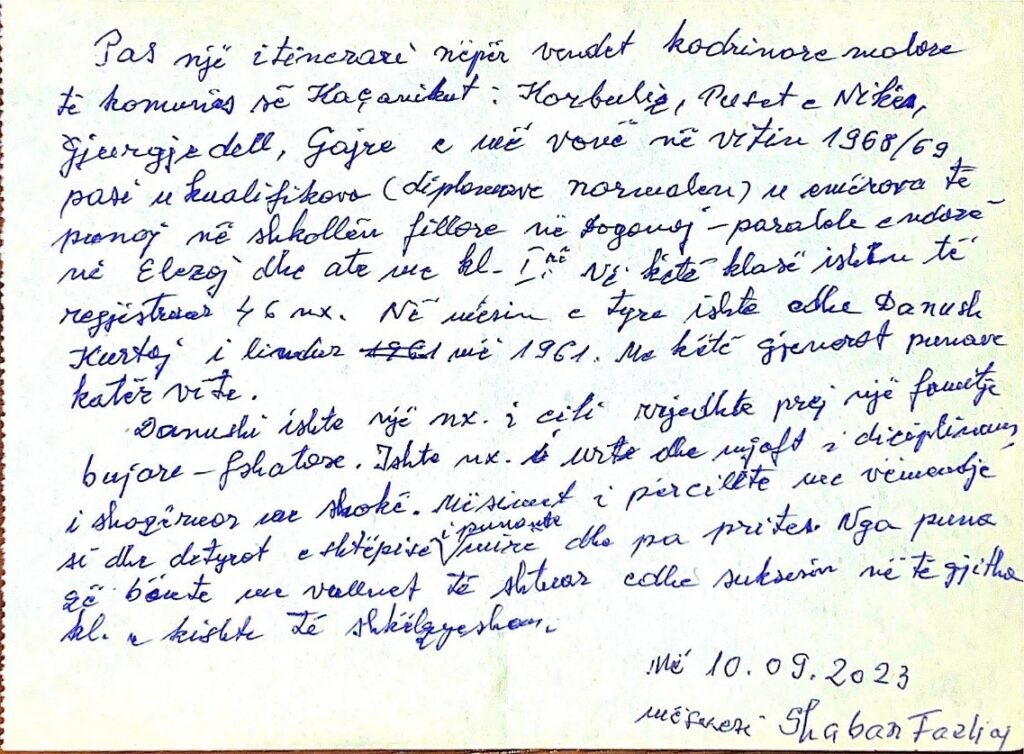 Pas një itinerari nëpër vendet kodrinore malore
të komunës së Kaçanikut: Korbuliq, Puset e Nikës,
Gjurgjedell, Gajre e më vonë në vitin 1968/69
pasi u kualifikova (diplomova normalen) u emërova të
punoj në shkollën fillore në Dogonaj - paralele e ndarë
në Elezaj dhe ate me kl. I.në Në këtë klasë ishin të
regjistruar 46 nx. Në mësin e tyre ishte edhe Danush
Kurtaj i lindur 1961 më 1961. Me këtë gjenerat punova
katër vite.
Danushi ishte një nx. i cili rrjedhte prej një familje
bujare - fshatare. Ishte nx. i urtë dhe mjaft i diciplinuar,
i shoqëruar me shokë. Mësimet i përcillte me vëmendje
si dhe detyrat e shtëpisë i punonte mirë dhe pa pritesë. Nga puna
që bënte me vullnet të shtuar edhe suksesin në të gjitha
kl. e kishte të shkëlqyeshëm.
Më 10.09.2023
mësuesi Shaban Fazliaj